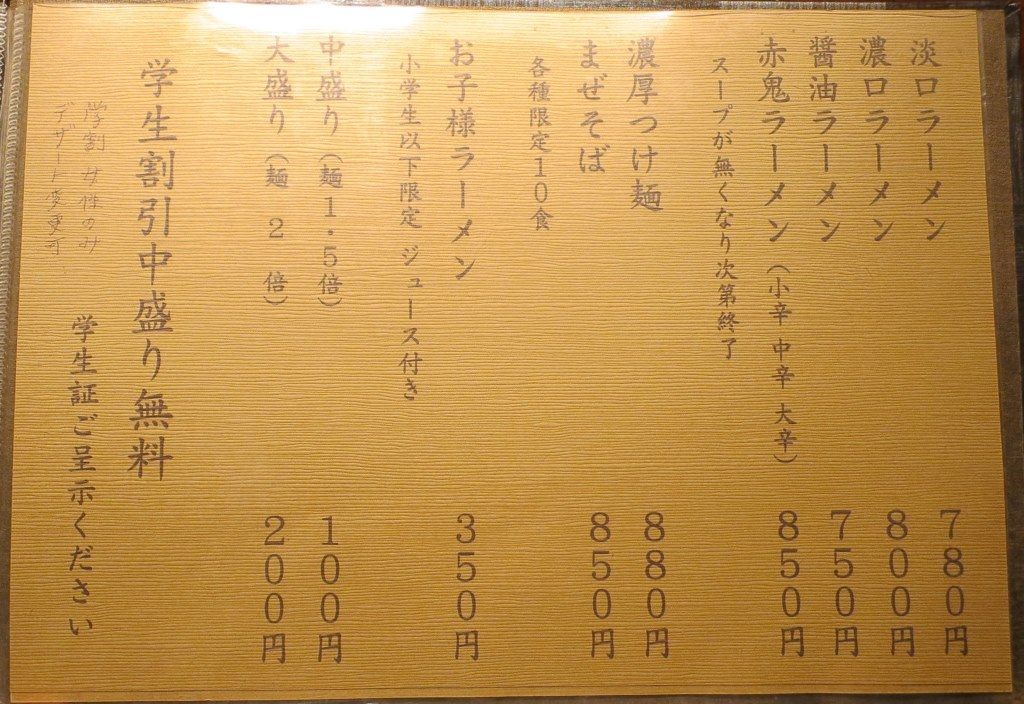 淡口ラーメン 780円
濃口ラーメン 800円
醤油ラーメン 750円
赤鬼ラーメン（小辛 中辛 大辛） 850円
スープが無くなり次第終了
濃厚つけ麺 880円
まぜそば 850円
各種限定10食
お子様ラーメン 350円
小学生以下限定 ジュース付き
中盛り（麺1.5倍） 100円
大盛り（麺 2 倍） 200円
学生割引中盛り無料
学割 女性のみ
デザート変更可
学生証ご呈示ください